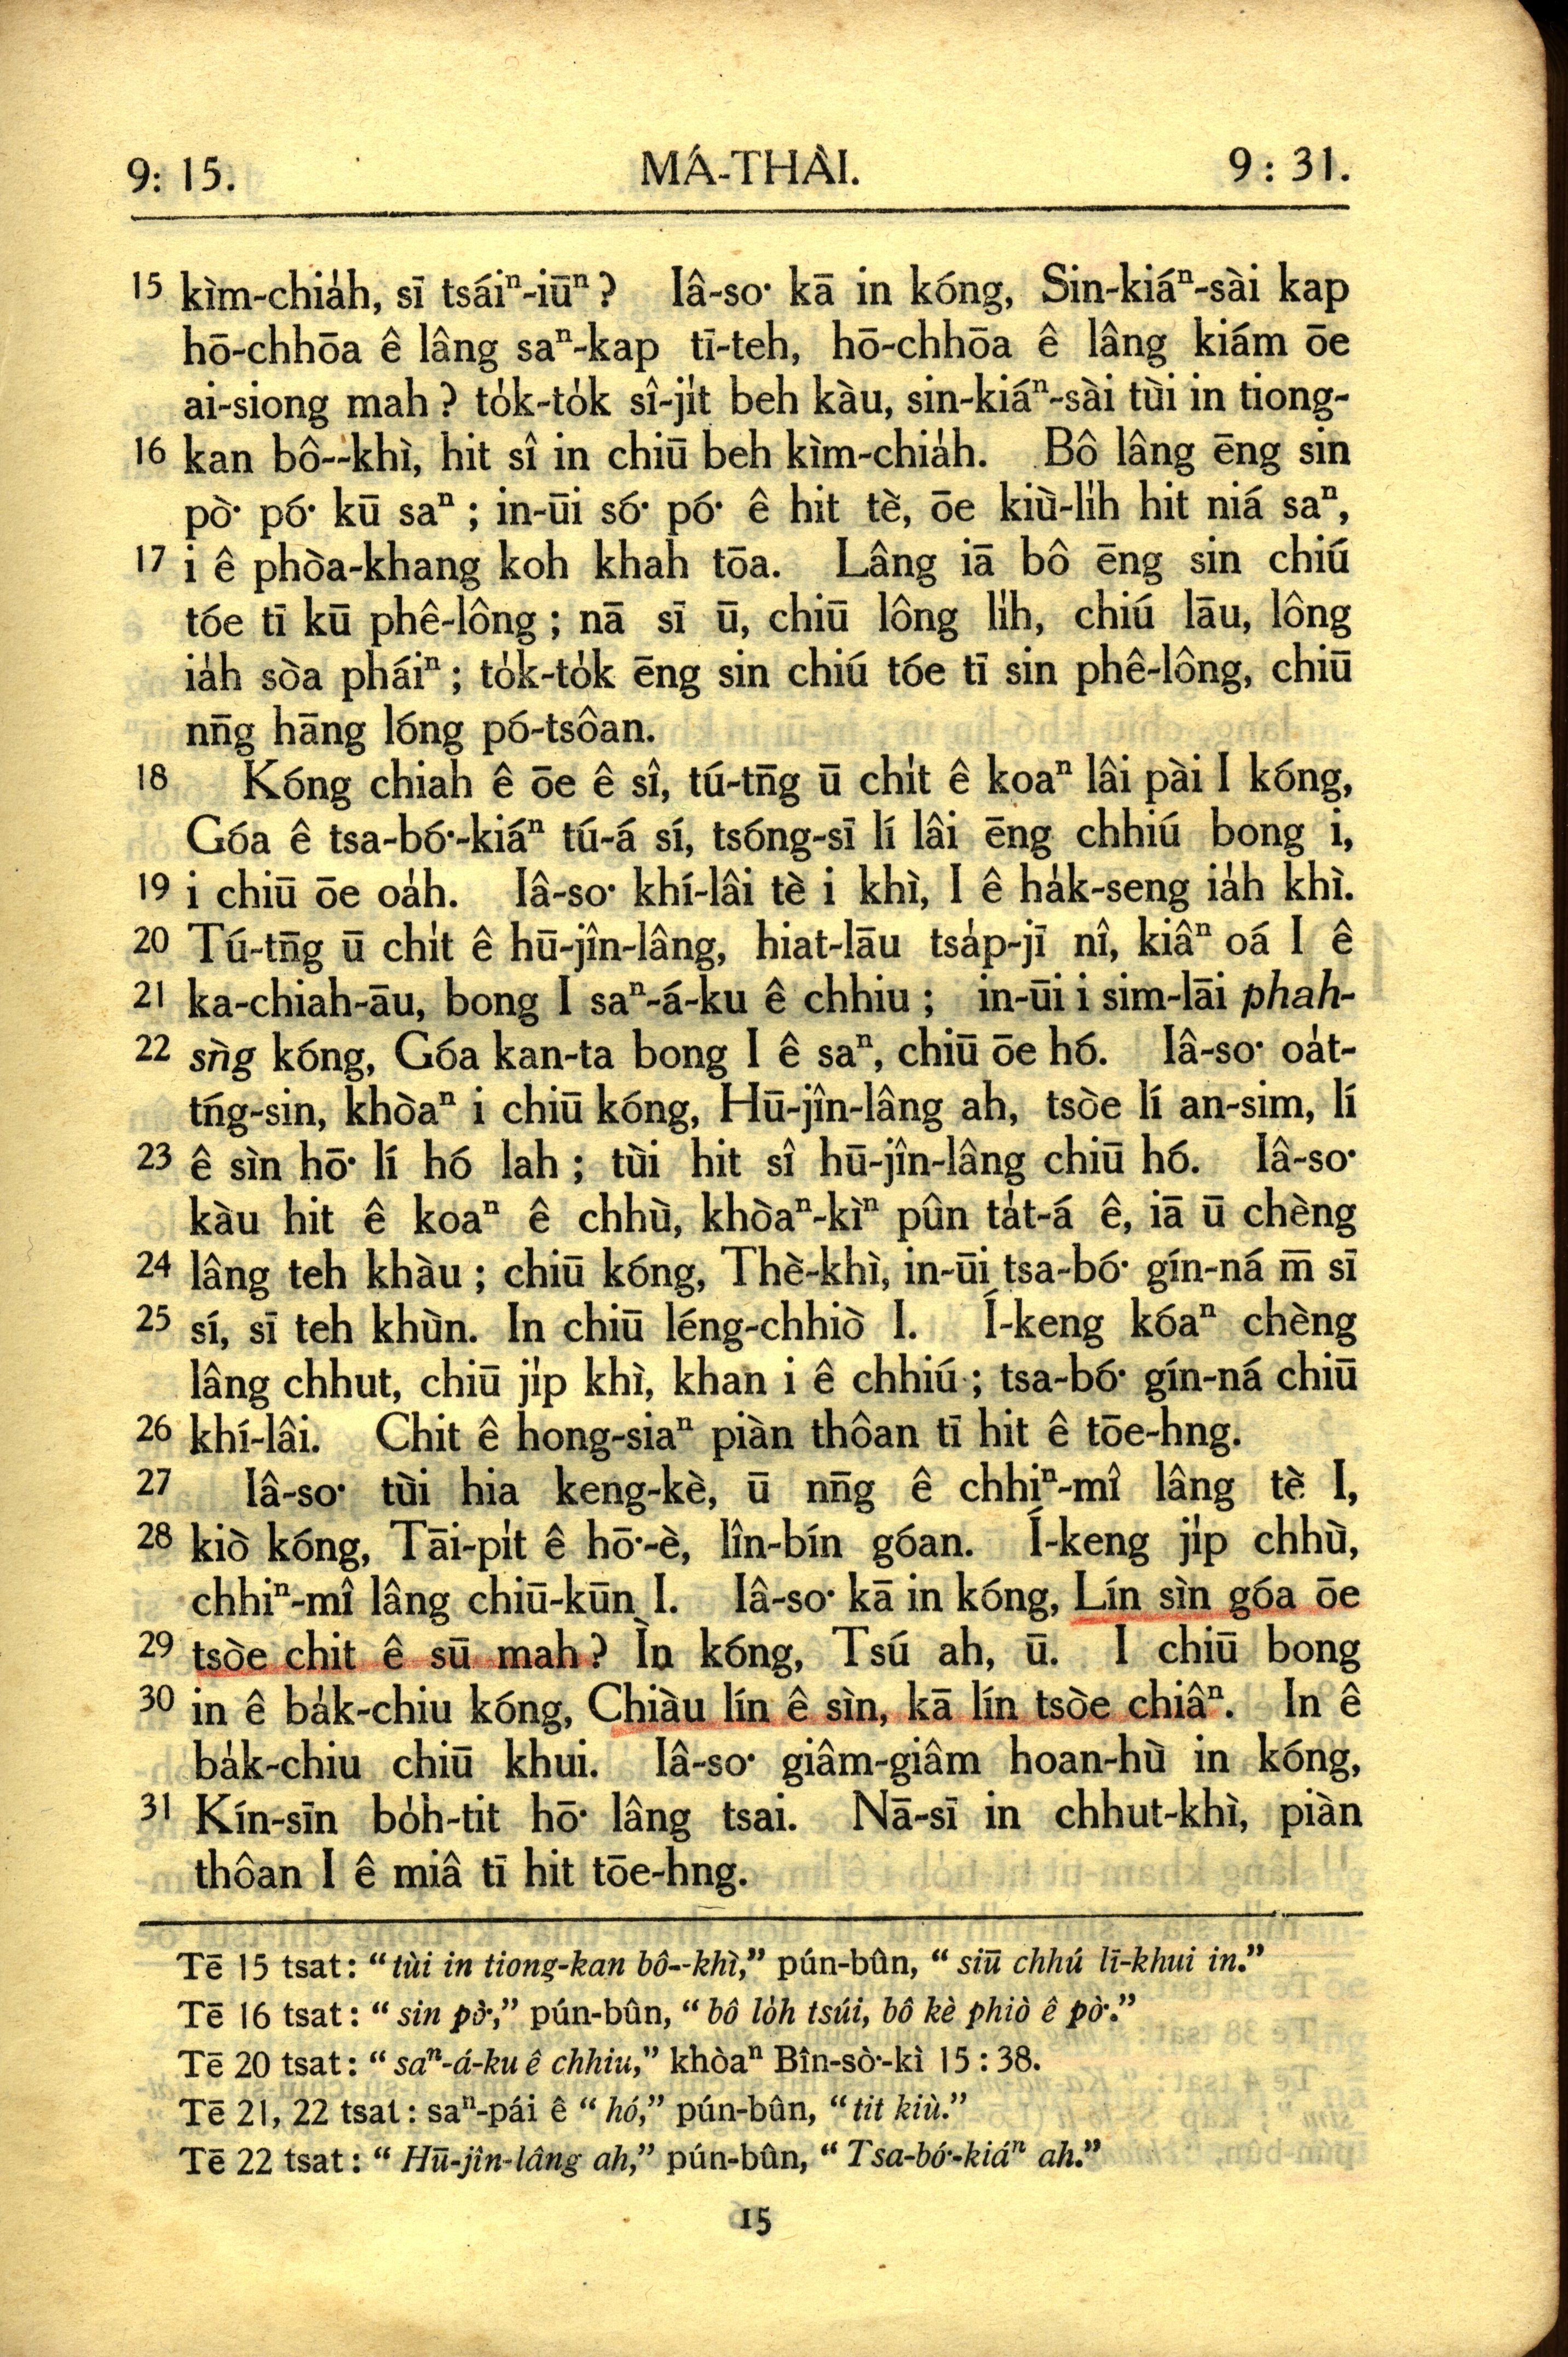 9: 15. MÁ-THÀI. 9 : 31.
15 kìm-chia̍h, sī tsáiⁿ-iūⁿ ? Iâ-so͘ kā in kóng, Sin-kiáⁿ-sài kap
hō-chhōa ê lâng saⁿ-kap tī-teh, hō-chhōa ê lâng kiám ōe
ai-siong mah ? to̍k-to̍k sî-ji̍t beh kàu, sin-kiáⁿ-sài tùi in tiong-
16 kan bô--khì, hit sî in chiū beh kìm-chia̍h. Bô lâng ēng sin
pò͘ pó͘ kū saⁿ ; in-ūi só͘ pó͘ ê hit tè, ōe kiù-li̍h hit niá saⁿ,
17 i ê phòa-khang koh khah tōa. Lâng iā bô ēng sin chiú
tóe tī kū phê-lông ; nā sī ū, chiū lông li̍h, chiú lāu, lông
ia̍h sòa pháiⁿ ; to̍k-to̍k ēng sin chiú tóe tī sin phê-lông, chiū
nn̄g hāng lóng pó-tsôan.
18 Kóng chiah ê ōe ê sî, tú-tn̄g ū chi̍t ê koaⁿ lâi pài I kóng,
Góa ê tsa-bó͘-kiáⁿ tú-á sí, tsóng-sī lí lâi ēng chhiú bong i,
19 i chiū ōe oa̍h. Iâ-so͘ khí-lâi tè i khì, I ê ha̍k-seng ia̍h khì.
20 Tú-tn̄g ū chi̍t ê hū-jîn-lâng, hiat-lāu tsa̍p-jī nî, kiâⁿ oá I ê
21 ka-chiah-āu, bong I saⁿ-á-ku ê chhiu ; in-ūi i sim-lāi phah-
22 sǹg kóng, Góa kan-ta bong I ê saⁿ, chiū ōe hó. Iâ-so͘ oa̍t-
tńg-sin, khòaⁿ i chiū kóng, Hū-jîn-lâng ah, tsòe lí an-sim, lí
23 ê sìn hō͘ lí hó lah ; tùi hit sî hū-jîn-lâng chiū hó. Iâ-so͘
kàu hit ê koaⁿ ê chhù, khòaⁿ-kìⁿ pûn ta̍t-á ê, iā ū chèng
24 lâng teh khàu ; chiū kóng, Thè-khì, in-ūi tsa-bó͘ gín-ná m̄ sī
25 sí, sī teh khùn. In chiū léng-chhiò I. Í-keng kóaⁿ chèng
lâng chhut, chiū ji̍p khì, khan i ê chhiú ; tsa-bó͘ gín-ná chiū
26 khí-lâi. Chit ê hong-siaⁿ piàn thôan tī hit ê tōe-hng.
27 Iâ-so͘ tùi hia keng-kè, ū nn̄g ê chhiⁿ-mî lâng tè I,
28 kiò kóng, Tāi-pi̍t ê hō͘-è, lîn-bín góan. Í-keng ji̍p chhù,
chhiⁿ-mî lâng chiū-kūn I. Iâ-so͘ kā in kóng, Lín sìn góa ōe
29 tsòe chit ê sū mah ? Ìn kóng, Tsú ah, ū. I chiū bong
30 in ê ba̍k-chiu kóng, Chiàu lín ê sìn, kā lín tsòe chiâⁿ. In ê
ba̍k-chiu chiū khui. Iâ-so͘ giâm-giâm hoan-hù in kóng,
31 Kín-sīn bo̍h-tit hō͘ lâng tsai. Nā-sī in chhut-khì, piàn
thôan I ê miâ tī hit tōe-hng.
Tē 15 tsat : “ tùi in tiong-kan bô--khì,” pún-bûn, “ siū chhú lī-khui in.”
Tē 16 tsat : “ sin pò͘,” pún-bûn, “ bô lo̍h tsúi, bô kè phiò ê pò͘.”
Tē 20 tsat : “ saⁿ-á-ku ê chhiu,” khòaⁿ Bîn-sò͘-kì 15 : 38.
Tē 21, 22 tsat : saⁿ-pái ê “ hó,” pún-bûn, “ tit kiù.”
Tē 22 tsat : “ Hū-jîn-lâng ah,” pún-bûn, “ Tsa-bó͘-kiáⁿ ah.”
15